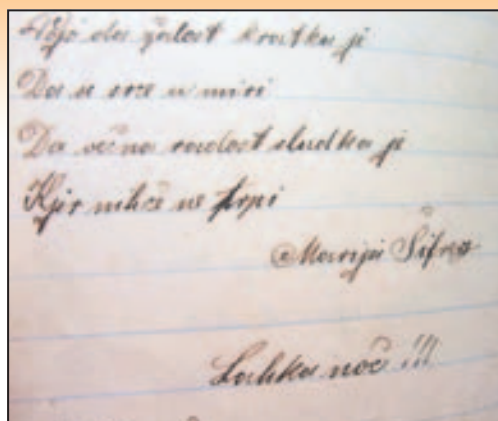 Pojo da žalost kratka je
Da u srce u miri
Da večna radost sladka je
Kjir nihče ne trpi
Marija Šifrer
Lahka noč !!!